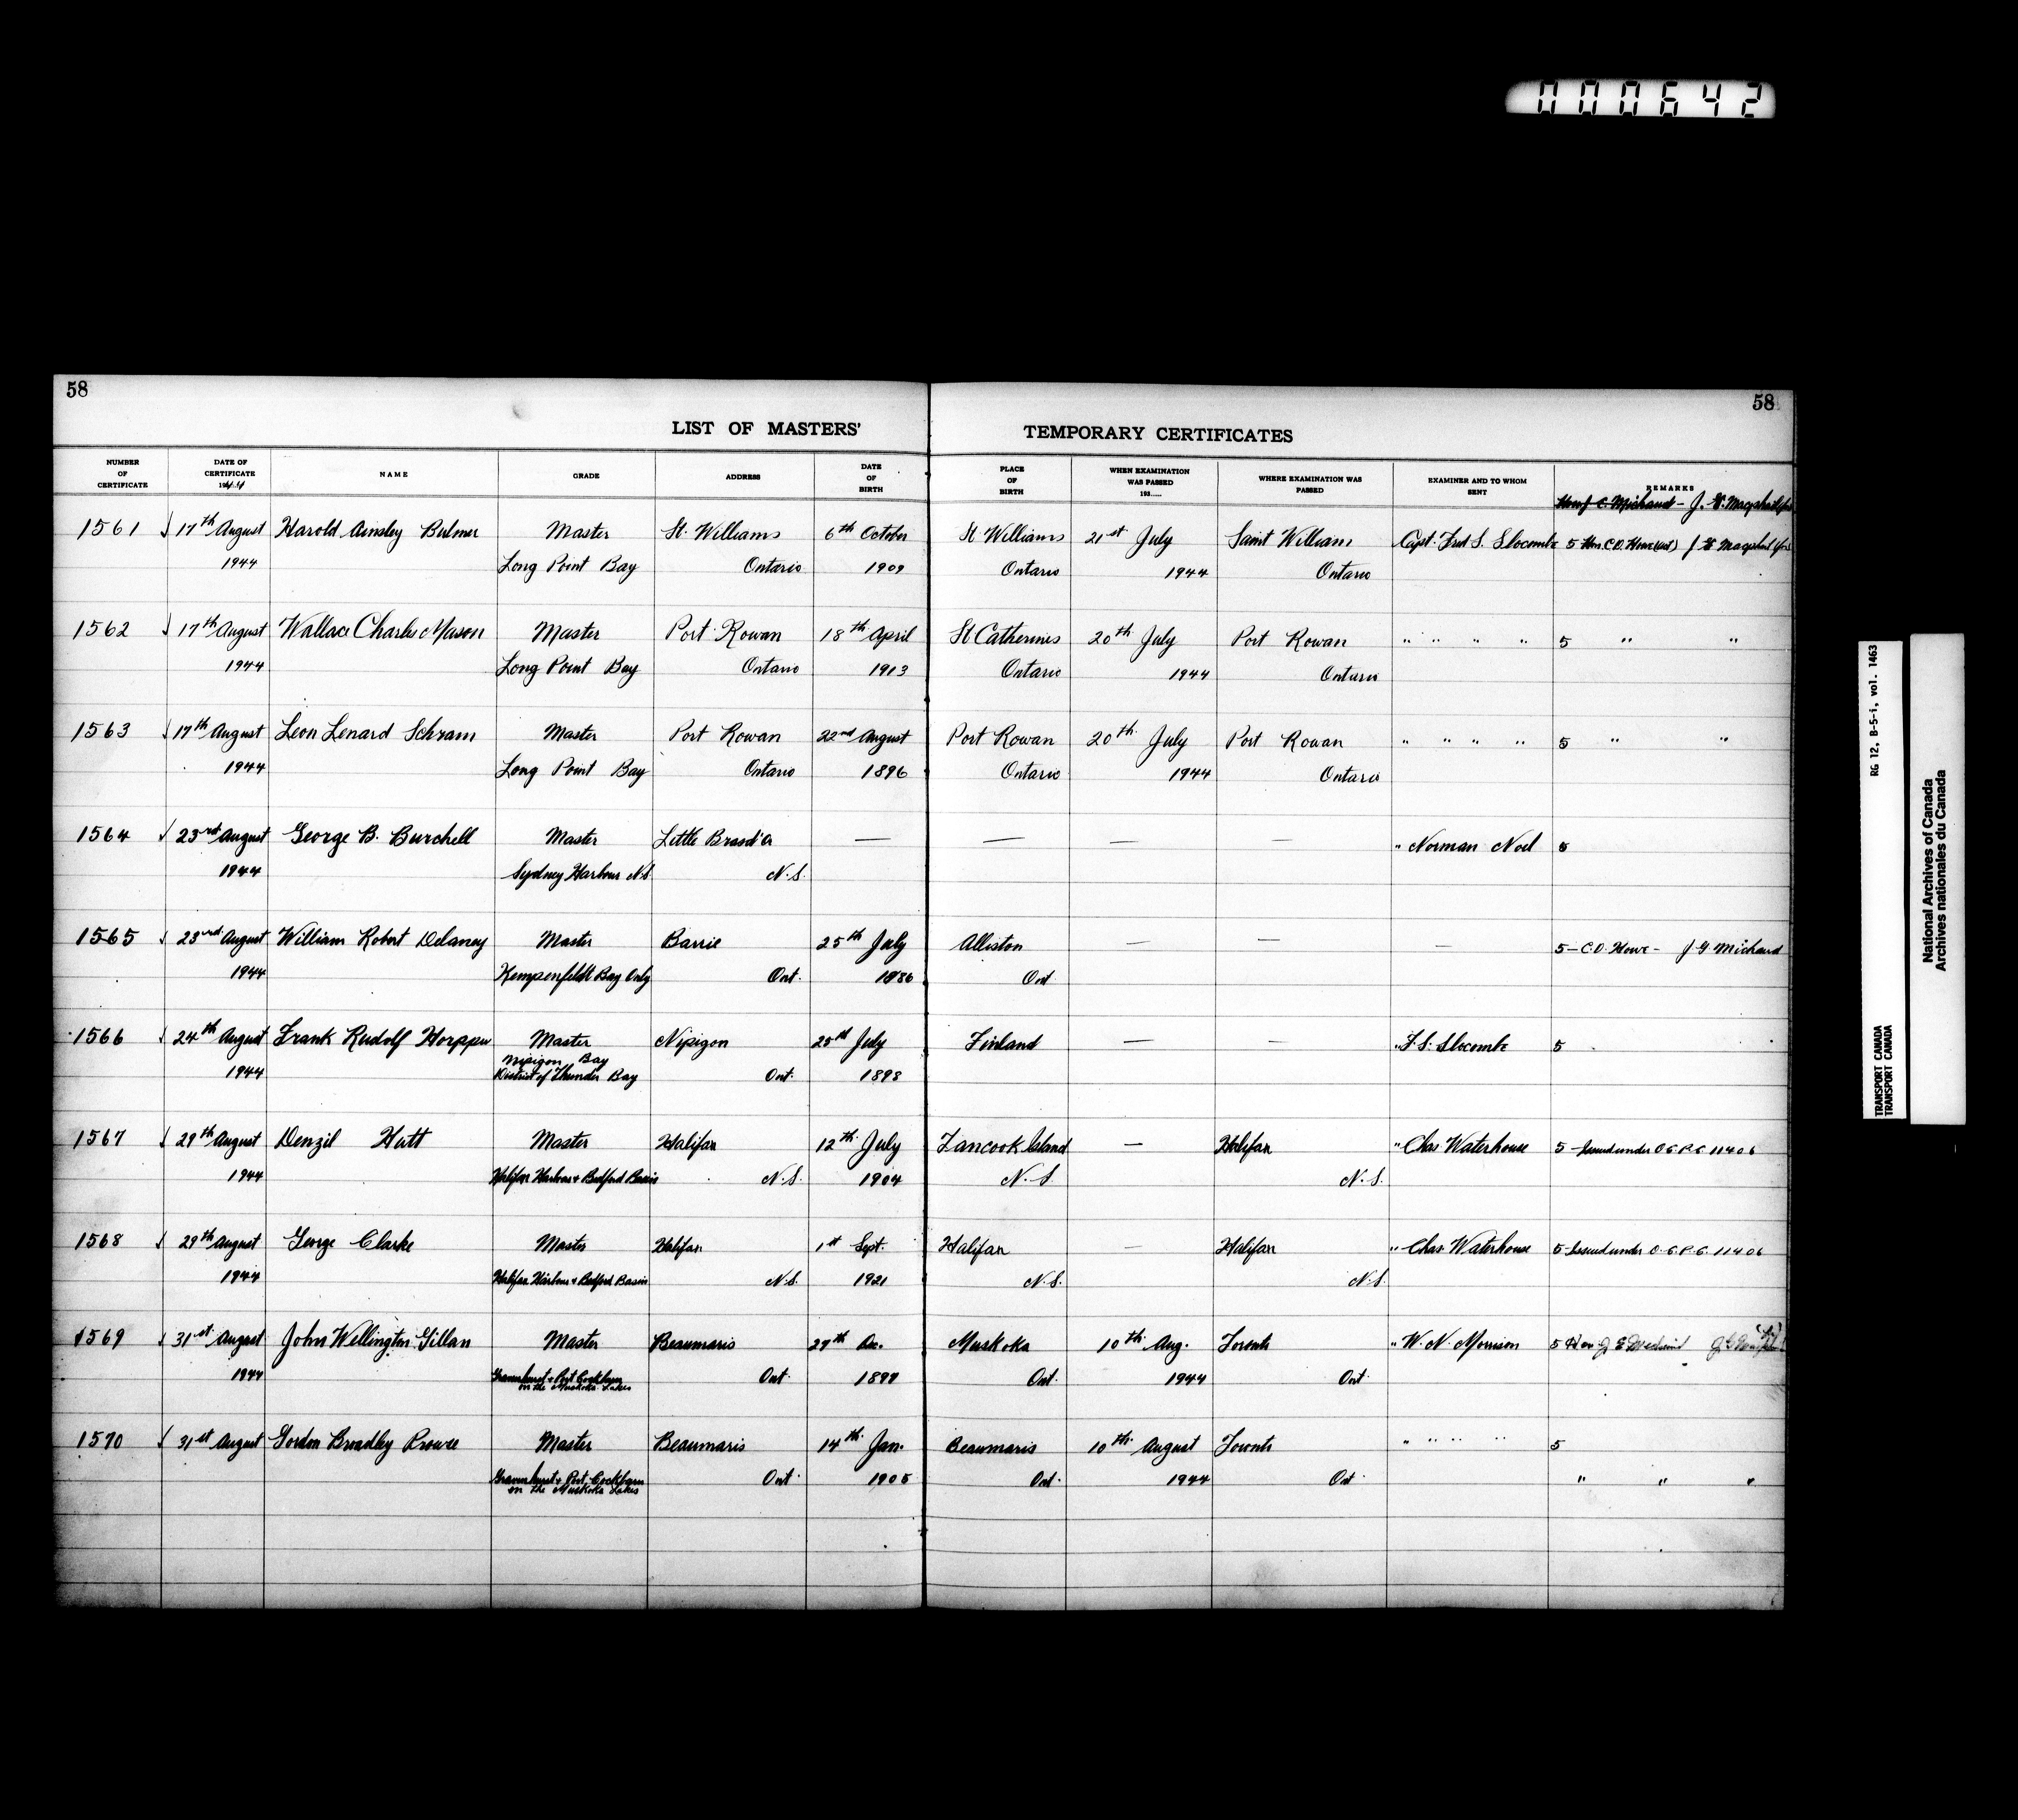 000642
58
58
LIST OF MASTERS' TEMPORARY CERTIFICATES
NUMBER OF CERTIFICATE
DATE OF CERTIFICATE 1944
NAME
GRADE
ADDRESS
DATE OF BIRTH
PLACE OF BIRTH
WHEN EXAMINATION WAS PASSED 193.....
WHERE EXAMINATION WAS PASSED
EXAMINER AND TO WHOM SENT
REMARKS
C. Michaud - J.
1561 17th August Harold Ainsley Bulmer Master St. Williams 6th October St Williams 21st July Saint William Capt. Fred S. Slocombe 5 Hon. C.D. Howe
1944 Long Point Bay Ontario 1909 Ontario 1944 Ontario
1562 17th August Wallace Charles Mason Master Port Rowan 18th April St Catherines 20th July Port Rowan " " " " 5 " "
1944 Long Point Bay Ontario 1913 Ontario 1944 Ontario
1563 17th August Leon Lenard Schram Master Port Rowan 22nd August Port Rowan 20th July Port Rowan " " " " 5 " "
1944 Long Point Bay Ontario 1896 Ontario 1944 Ontario
1564 23rd August George B. Burchell Master Little Brasd'or — — — — " Norman Noel 5
1944 Sydney Harbour N.S. N.S.
1565 23rd August William Robert Delaney Master Barrie 25th July Alliston — — — 5 - C.D. Howe - J G Michaud
1944 Kempenfeldt Bay Only Ont. 1886 Ont
1566 24th August Frank Rudolf Master Nipigon 25th July Finland — — " F. S. Slocombe 5
Nipigon Bay
1944 District of Thunder Bay Ont. 1898
1567 29th August Denzil Hutt Master Halifax 12th July Tancook Island — Halifax " Chas Waterhouse 5 - Issued under O C P.C. 11406
1944 Halifax Harbour & Bedford Basin N.S. 1904 N.S. N.S.
1568 29th August George Clarke Master Halifax 1st Sept. Halifax — Halifax " Chas. Waterhouse 5 - Issued under O.C P.C. 11406
1944 Halifax Harbour & Bedford Basin N.S. 1921 N.S. N.S.
1569 31st August John Wellington Gillan Master Beaumaris 29th Dec. Muskoka 10th Aug. Toronto " W. N. Morrison 5 Hon J
1944 Gravenhurst & Port Cockburn Ont. 1899 Ont. 1944 Ont.
on the Muskoka Lakes
1570 31st August Gordon Bradley Prowse Master Beaumaris 14th Jan. Beaumaris 10th August Toronto " " " " 5
1944 Gravenhurst & Port Cockburn Ont. 1905 Ont. 1944 Ont. " " "
on the Muskoka Lakes
RG 12, B-5-i, vol. 1463
TRANSPORT CANADA
TRANSPORT CANADA
National Archives of Canada
Archives nationales du Canada